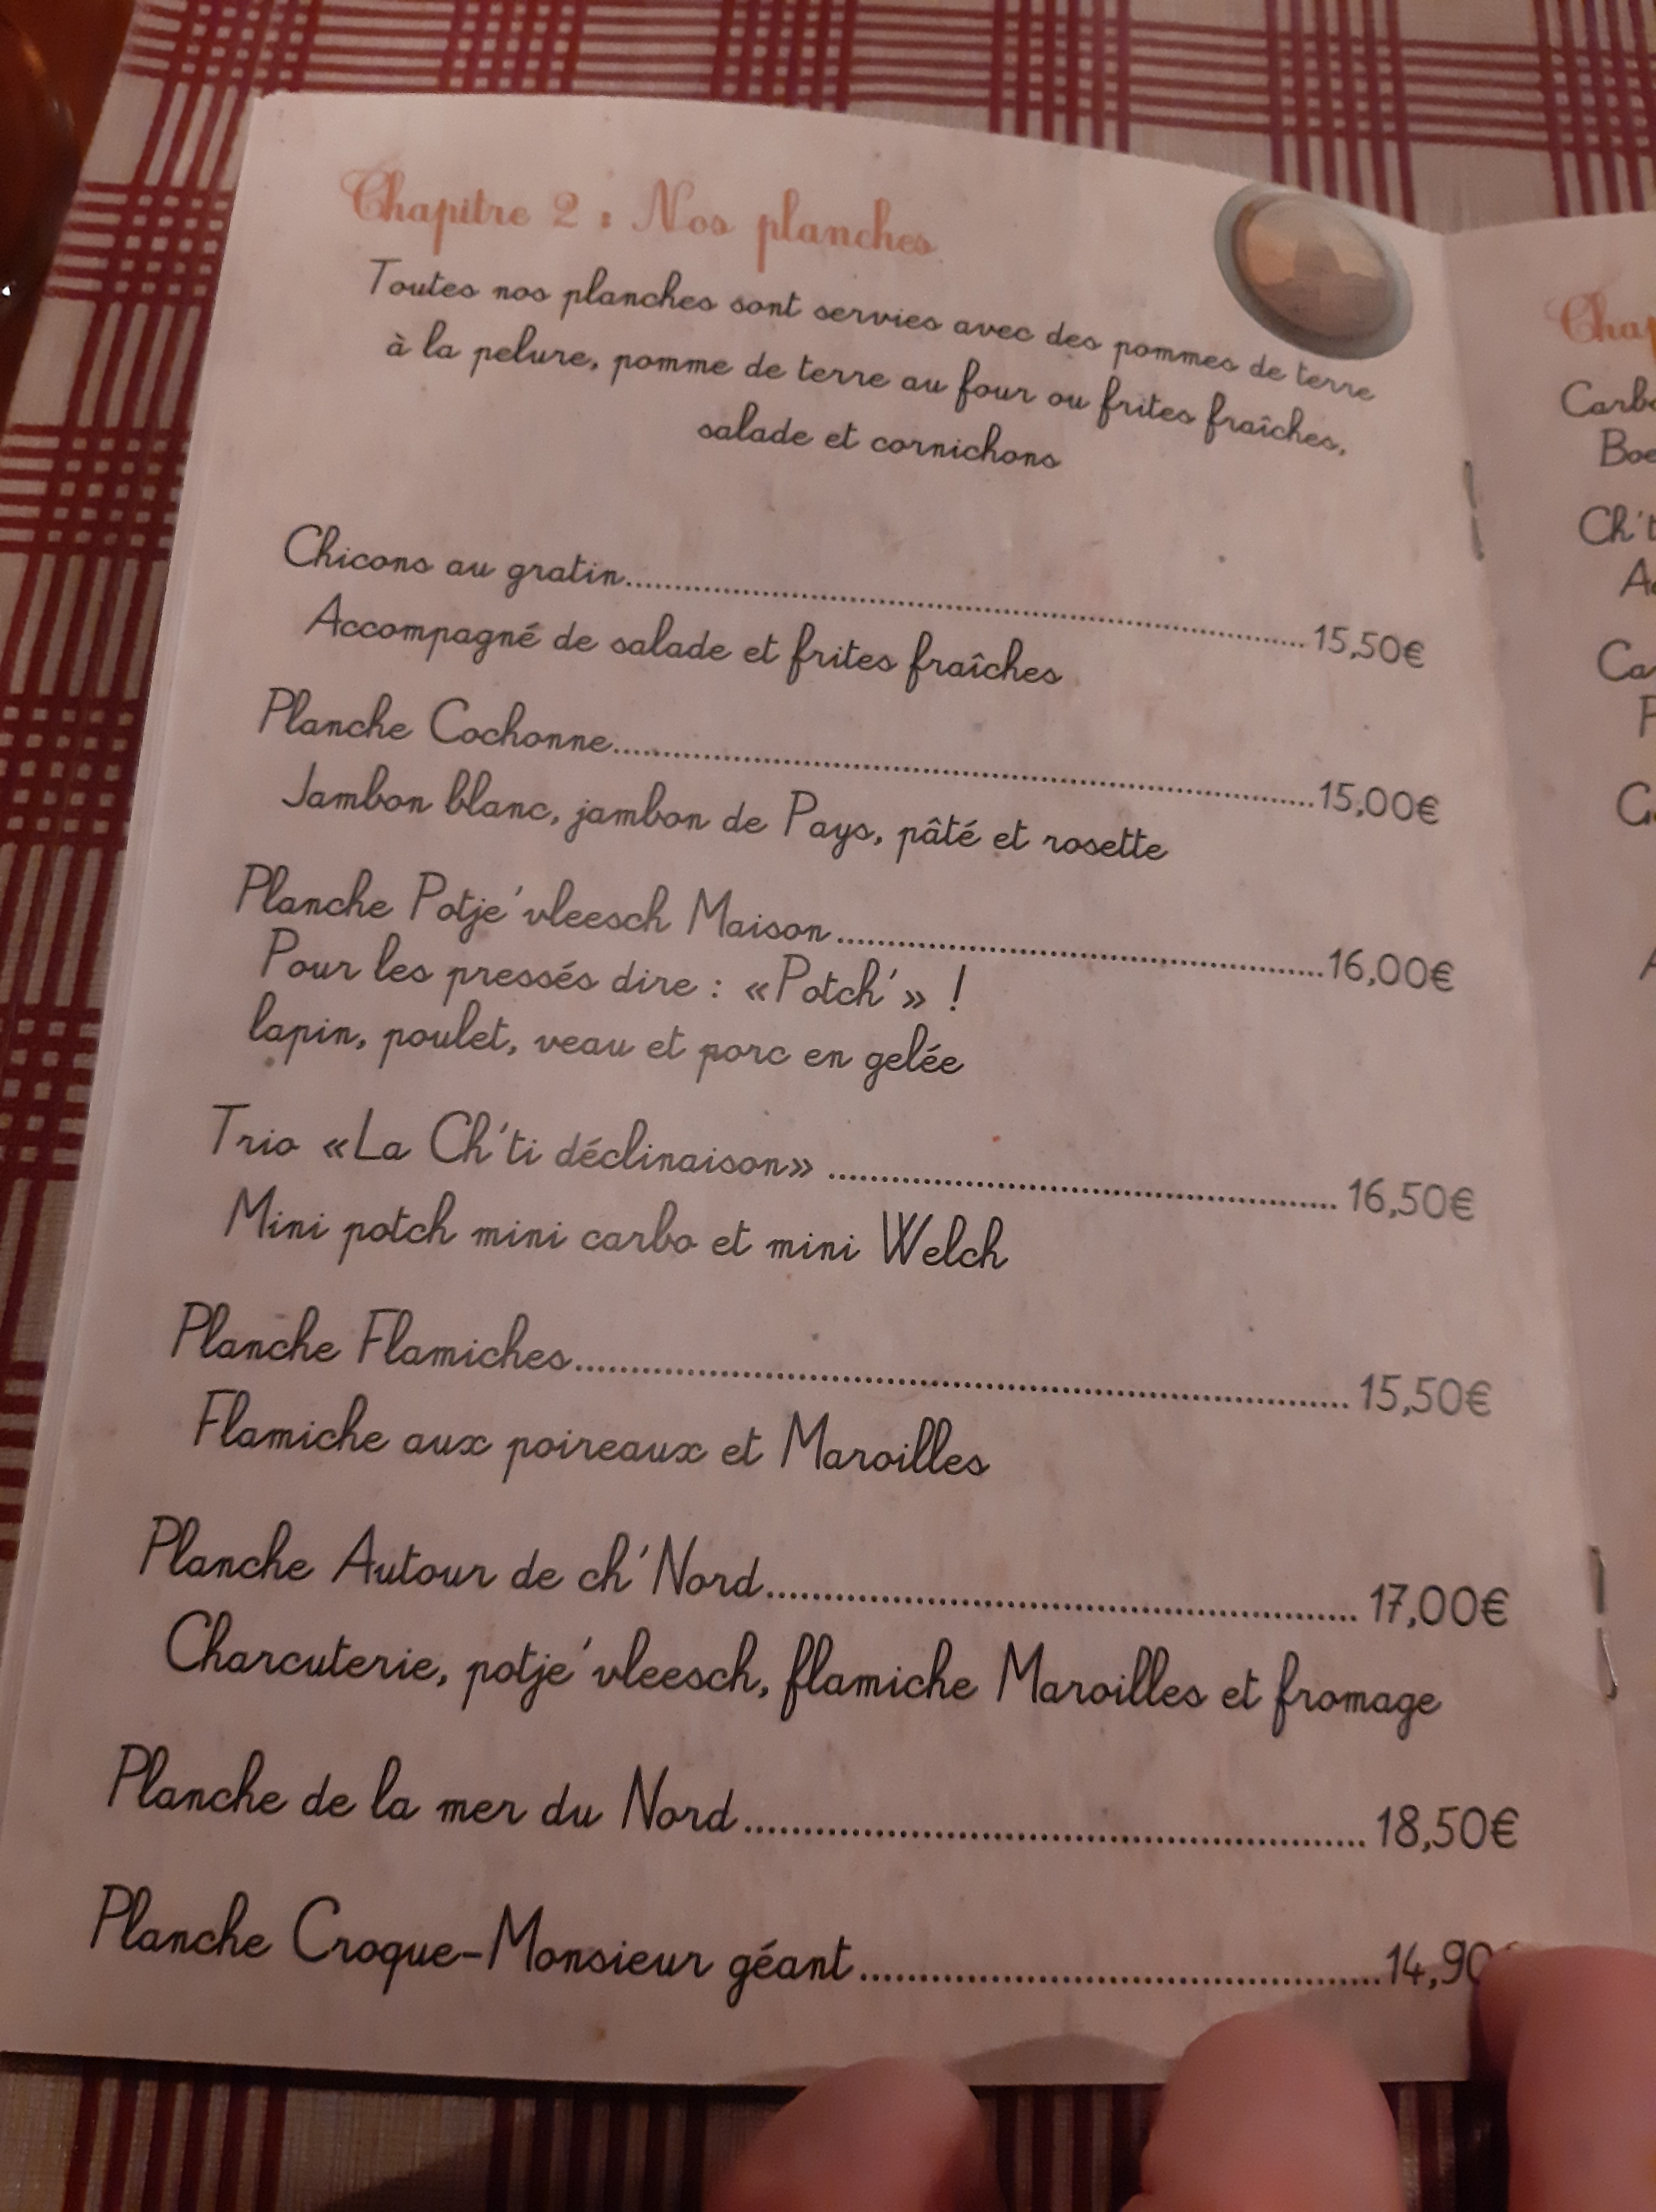 Chapitre 2 : Nos planches
Toutes nos planches sont servies avec des pommes de terre
à la pelure, pomme de terre au four ou frites fraîches,
salade et cornichons
Chicons au gratin.......15,50€
Accompagné de salade et frites fraîches
Planche Cochonne.......15,00€
Jambon blanc, jambon de Pays, pâté et rosette
Planche Potje'vleesch Maison.......16,00€
Pour les pressés dire : «Potch'» !
lapin, poulet, veau et porc en gelée
Trio «La Ch'ti déclinaison» ....... 16,50€
Mini potch mini carbo et mini Welch
Planche Flamiches....... 15,50€
Flamiche aux poireaux et Maroilles
Planche Autour de ch'Nord....... 17,00€
Charcuterie, potje'vleesch, flamiche Maroilles et fromage
Planche de la mer du Nord....... 18,50€
Planche Croque-Monsieur géant.......14,90
Ch't